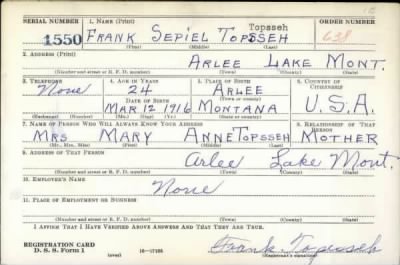 SERIAL NUMBER 1. NAME (Print) ORDER NUMBER
Topsseh
1550 FRANK SEPIEL TOPSSEH 638
(First) (Middle) (Last)
2. ADDRESS (Print)
ARLEE LAKE MONT.
(Number and street or R. F. D. number) (Town) (County) (State)
3. TELEPHONE 4. AGE IN YEARS 5. PLACE OF BIRTH 6. COUNTRY OF CITIZENSHIP
None 24 ARLEE
DATE OF BIRTH (Town or county)
MAR 12 1916 MONTANA U.S.A.
(Exchange) (Number) (Mo.) (Day) (Yr.) (State or country)
7. NAME OF PERSON WHO WILL ALWAYS KNOW YOUR ADDRESS 8. RELATIONSHIP OF THAT PERSON
MRS MARY ANNE TOPSSEH MOTHER
(Mr., Mrs., Miss) (First) (Middle) (Last)
9. ADDRESS OF THAT PERSON
Arlee Lake Mont.
(Number and street or R. F. D. number) (Town) (County) (State)
10. EMPLOYER'S NAME
None
11. PLACE OF EMPLOYMENT OR BUSINESS
(Number and street or R. F. D. number) (Town) (County) (State)
I AFFIRM THAT I HAVE VERIFIED ABOVE ANSWERS AND THAT THEY ARE TRUE.
Frank Topsseh
REGISTRATION CARD
D. S. S. Form 1 (over) 16—17105 (Registrant's signature)